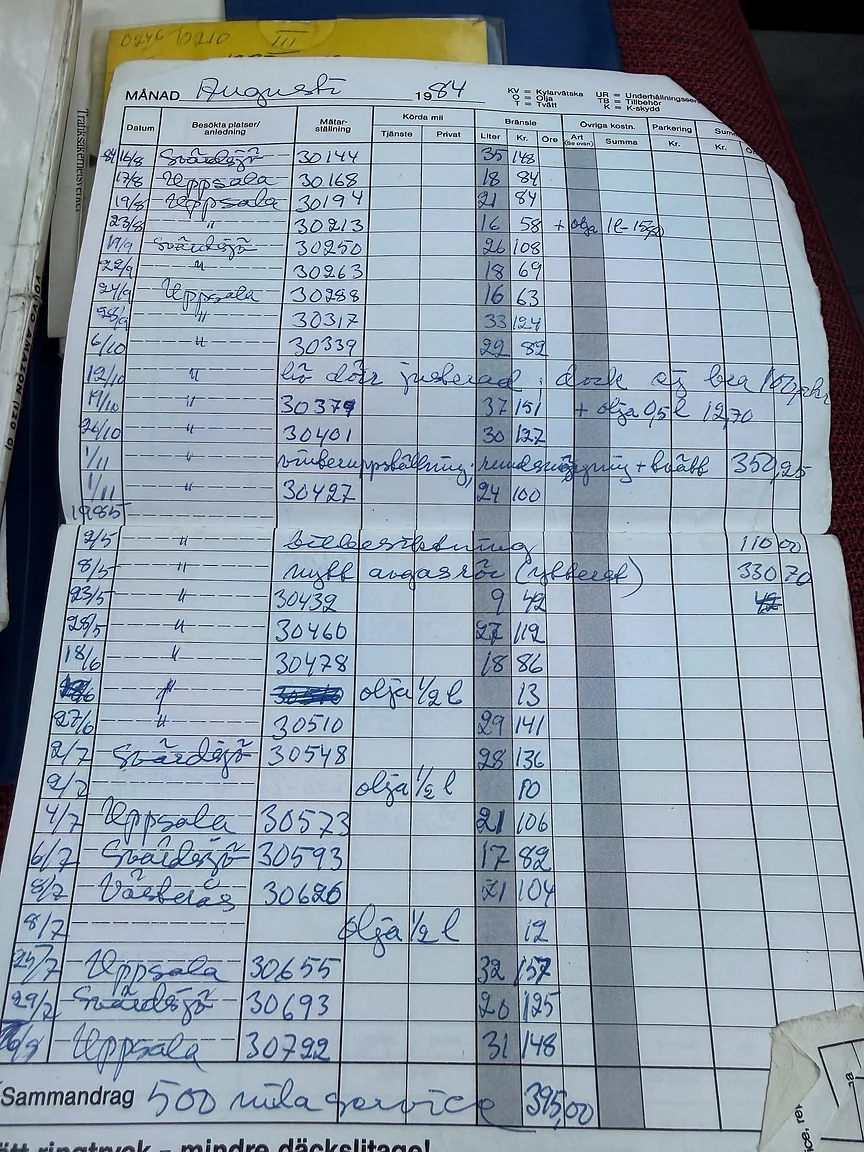 0246 10210 III
Trafiksäkerhetsverket
MÅNAD Augusti 1984
KV = Kylarvätska UR = Underhållningsserv
O = Olja TB = Tillbehör
T = Tvätt K = K-skydd
Datum Besökta platser/ anledning Mätar- ställning Körda mil Tjänste Privat Bränsle Liter Kr. Öre Övriga kostn. Art (Se ovan) Summa Parkering Kr. Summ Kr.
84 16/8 Svärdsjö 30144 35 148
17/8 Uppsala 30168 18 84
19/8 Uppsala 30194 21 84
23/8 " 30213 16 58 + olja 1l-
17/9 Svärdsjö 30250 26 108
22/9 " 30263 18 69
24/9 Uppsala 30288 16 63
" 30317 33 124
6/10 " 30339 22 82
12/10 " hö dörr justerad; dock ej bra
19/10 " 30379 37 151 + olja 0,5 l 12,70
26/10 " 30401 30 127
1/11 " vinteruppställning; + tvätt 350,25
1/11 " 30427 24 100
1985
2/5 " bilbesiktning 110 00
8/5 " nytt avgasrör 330 70
23/5 " 30432 9 42 42
28/5 " 30460 27 112
18/6 " 30478 18 86
" olja 1/2 l 13
27/6 " 30510 29 141
2/7 Svärdsjö 30548 28 136
2/7 olja 1/2 l 10
4/7 Uppsala 30573 21 106
6/7 Svärdsjö 30593 17 82
8/7 Västerås 30620 21 104
8/7 olja 1/2 l 12
25/7 Uppsala 30655 32 157
29/7 Svärdsjö 30693 26 125
Uppsala 30722 31 148
Sammandrag 500 mila service 395,00
ätt ringtryck – mindre däckslitage!